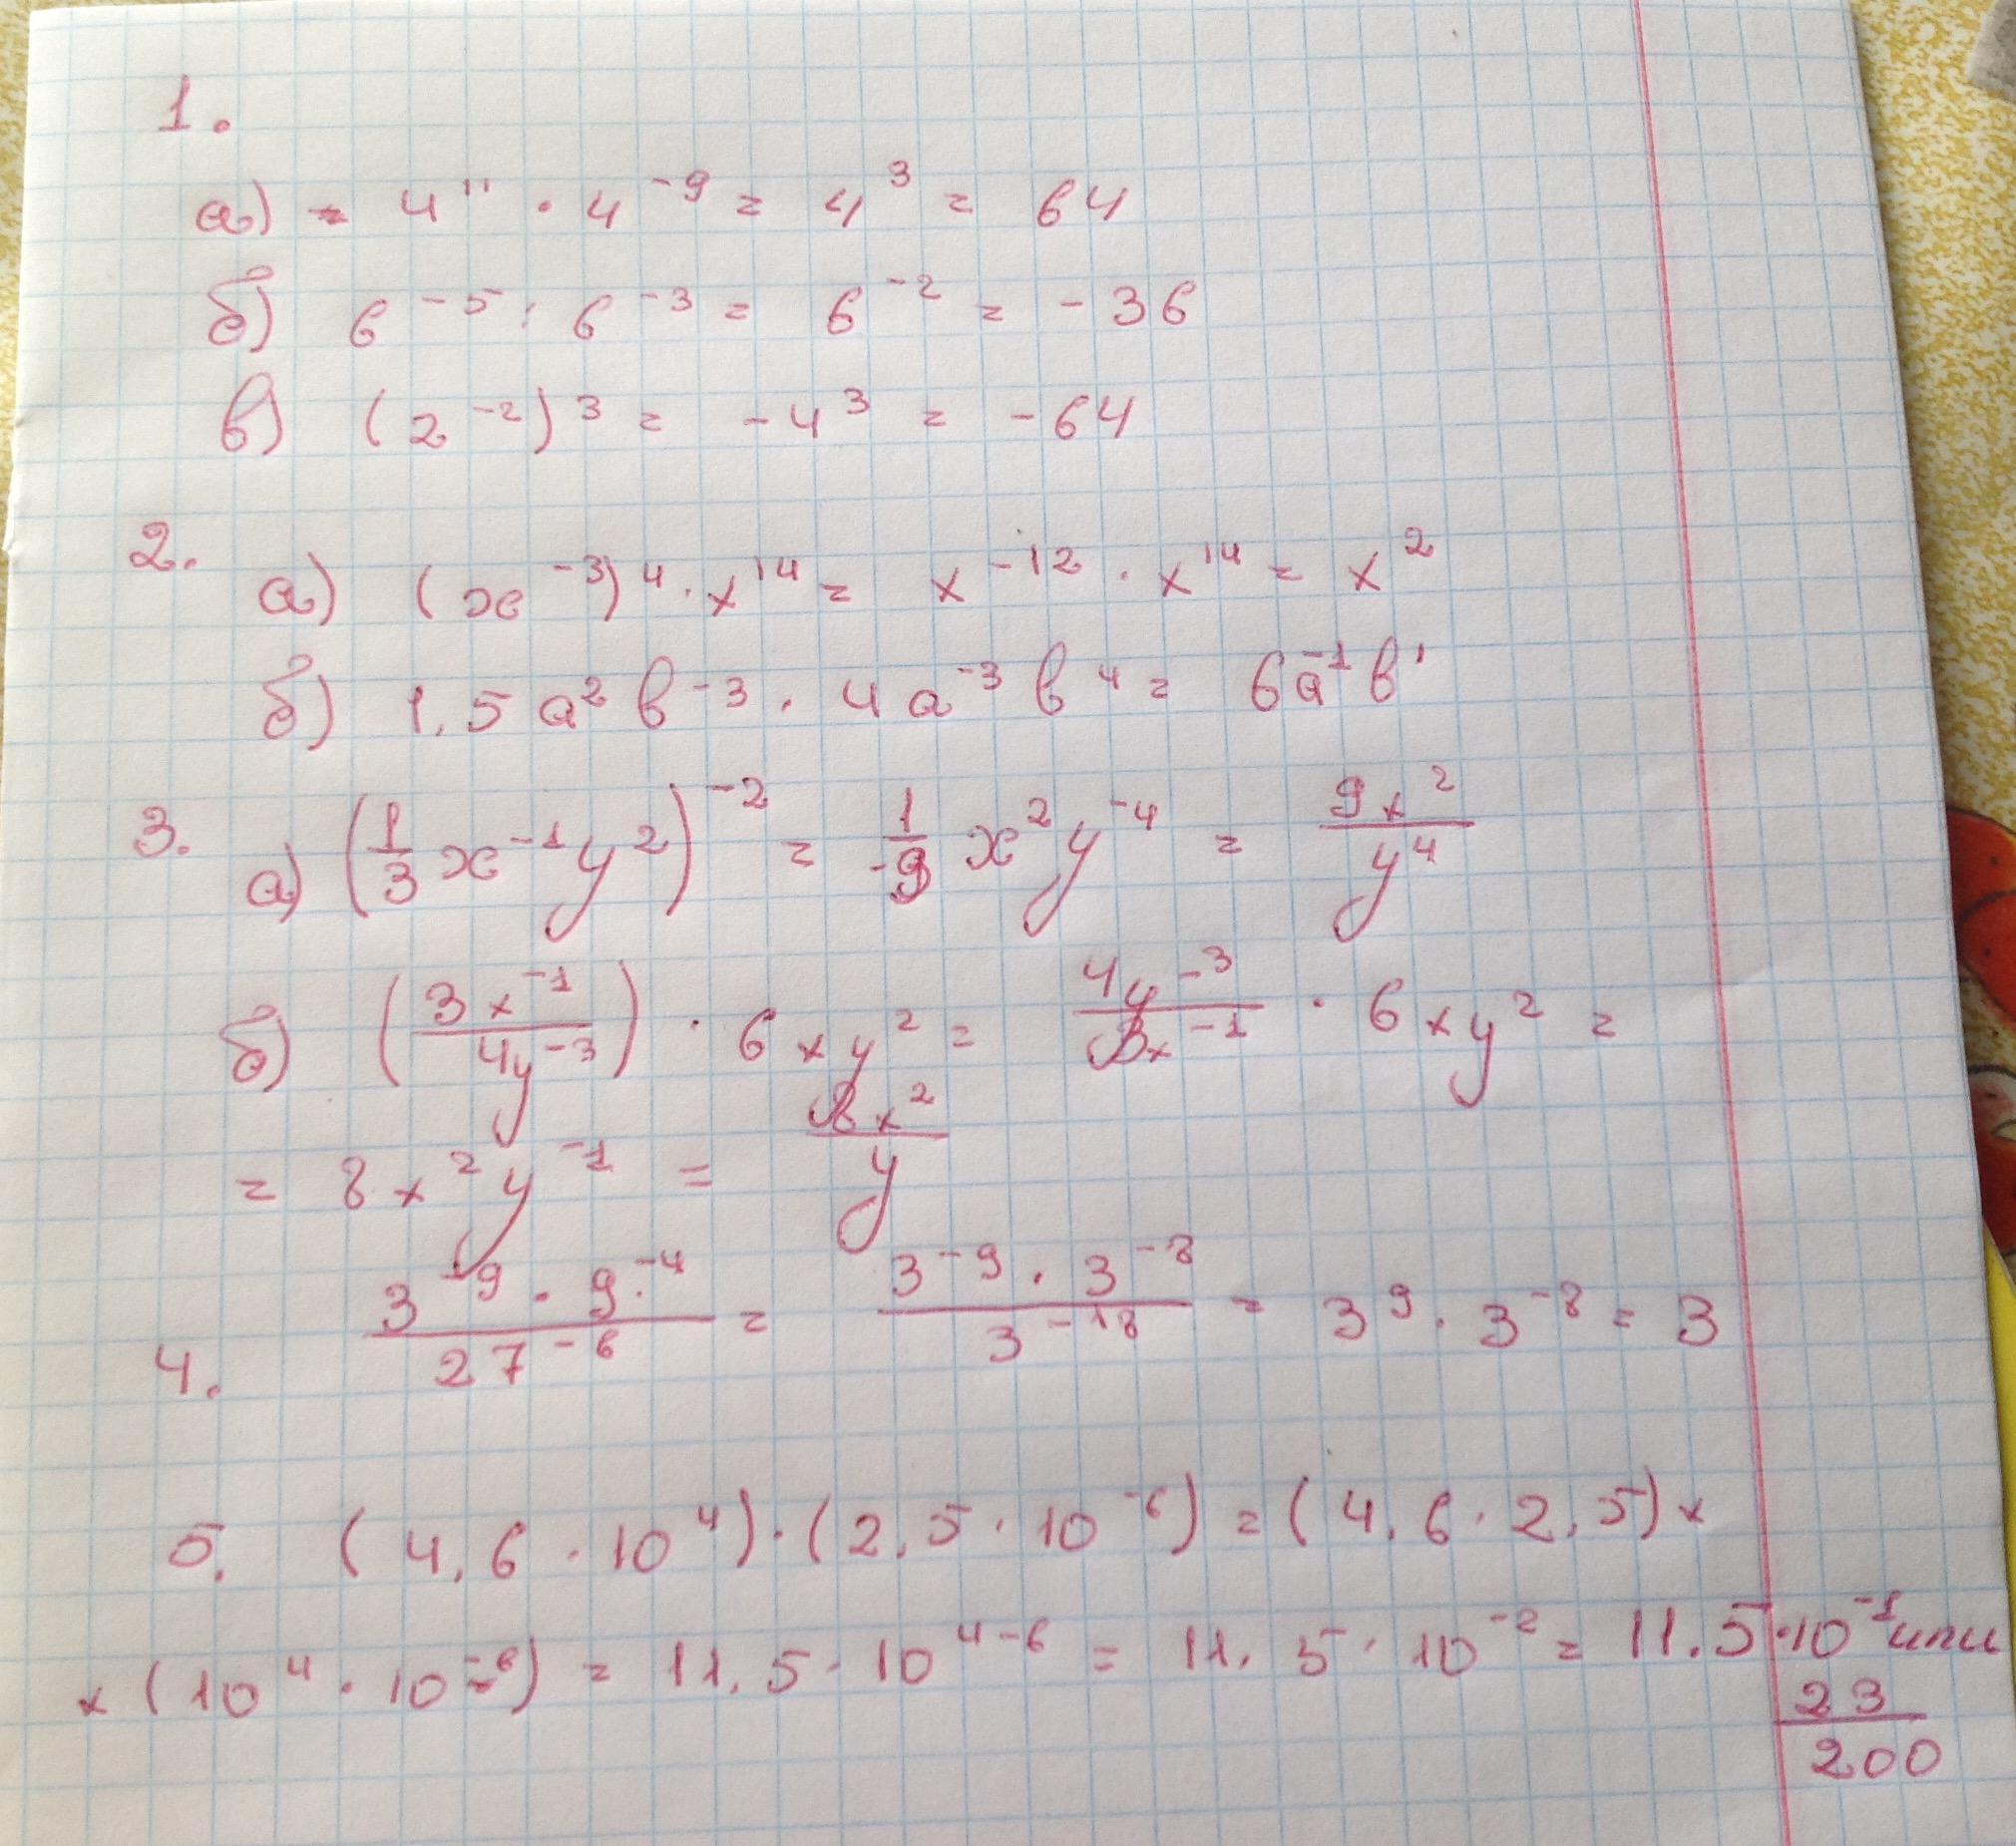 1.
а) - 4¹¹ · 4⁻⁹ = 4³ = 64
б) 6⁻⁵ : 6⁻³ = 6⁻² = - 36
в) (2⁻²)³ = -4³ = -64
2. а) (x⁻³)⁴ · x¹⁴ = x⁻¹² · x¹⁴ = x²
б) 1,5 a² b⁻³ · 4 a⁻³ b⁴ = 6a⁻¹b¹
3. а) (1/3 x⁻¹y²)⁻² = 1/-9 x²y⁻⁴ = 9x²/y⁴
б) (3x⁻¹/4y⁻³) · 6xy² = 4y⁻³/3x⁻¹ · 6xy² =
= 8x²y⁻¹ = 8x²/y
4. 3⁻⁹ · 9⁻⁴/27⁻⁶ = 3⁻⁹ · 3⁻⁸/3⁻¹⁸ = 3⁹ · 3⁻⁸ = 3
5. (4,6 · 10⁴) · (2,5 · 10⁻⁶) = (4,6 · 2,5) ×
× (10⁴ · 10⁻⁶) = 11,5 · 10⁴⁻⁶ = 11,5 · 10⁻² = 11.5 · 10⁻¹ или
23/200